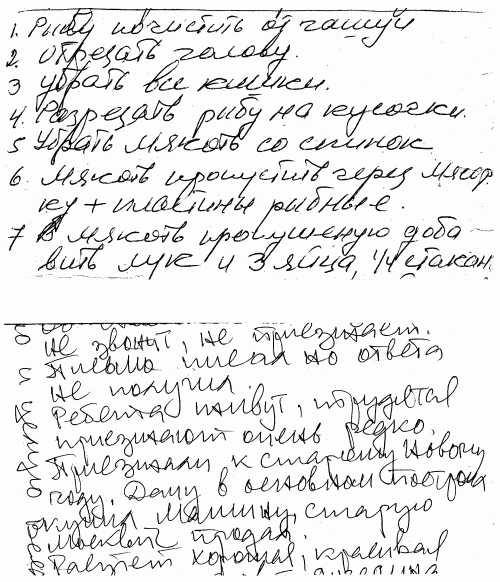 1. Рыбу почистить от чашуи
2. Отрезать голову.
3 Убрать все кишки.
4. Разрезать рибу на кусочки.
5 Убрать мякоть со спинок
6. Мякоть пропустить через мясор
ку + пластины рибные.
7 В мякоть пропушеную доба
вить лук и 3 яйца, 1/4 стакан.
не звонит, не приезжает.
Письмо писал но ответа
не получил.
Ребята живут, трудятся
приезжают очень редко.
Приезжали к старому новому
году. Дачу в основном
купил машину, старую
москвич продал.
Растет хорошая, красивая